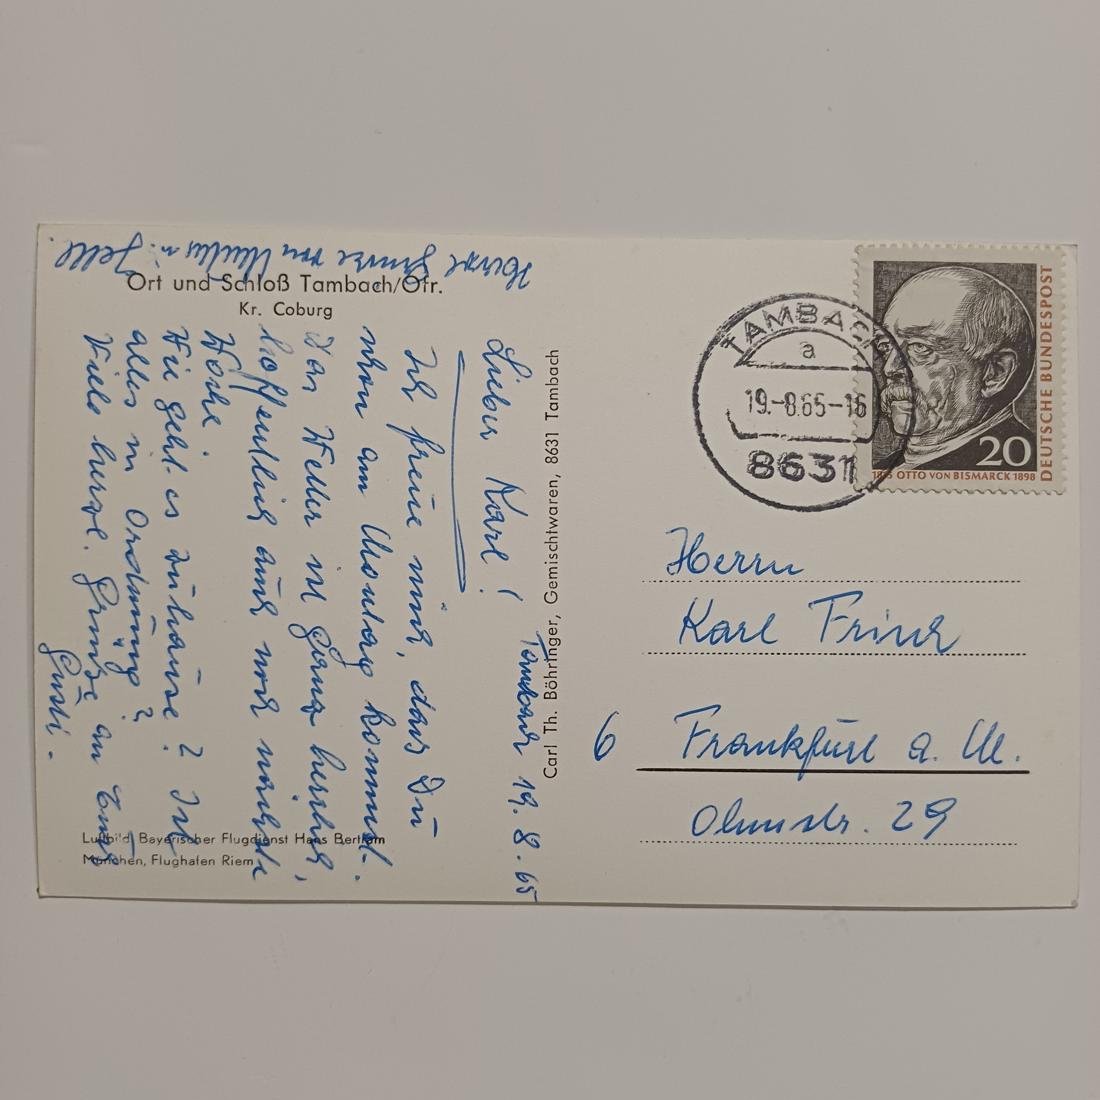 Ort und Schloß Tambach/Ofr.
Kr. Coburg
Tambach 19.8.65
Lieber Karl!
Ich freue mich, dass Du
schon am Montag kommst.
Das Wetter ist ganz herrlich,
hoffentlich auch noch nächste
Woche.
Wie geht es zuhause? Ist
alles in Ordnung?
Viele herzl. Grüsse an Euch
Gusti.
Herzl. Grüsse von
Luftbild: Bayerischer Flugdienst Hans Bertram
München, Flughafen Riem
Carl Th. Böhringer, Gemischtwaren, 8631 Tambach
TAMBACH
a
19.-8.65-16
8631
DEUTSCHE BUNDESPOST
20
1815 OTTO VON BISMARCK 1898
Herrn
Karl
6 Frankfurt a. M.
29